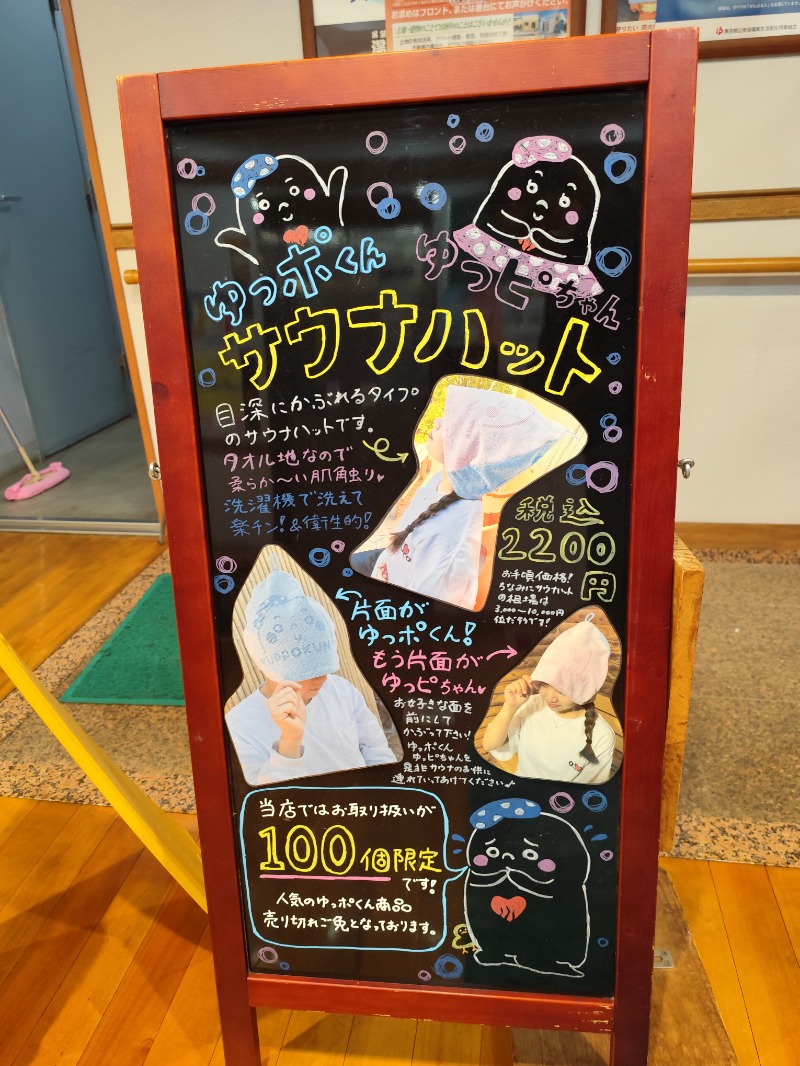 お求めはフロント、または番台にてお声がけください。
ゆっポくん
ゆっピちゃん
サウナハット
目深にかぶれるタイプ
のサウナハットです。
タオル地なので
柔らか〜い肌触り♥
洗濯機で洗えて
楽チン!&衛生的!
税込
2200
円
お手頃価格!
ちなみにサウナハット
の相場は
3,000〜10,000円
位だそうです!
片面が
ゆっポくん!
YUPPOKUN
もう片面が
ゆっピちゃん♥
お好きな面を
前にして
かぶって下さい!
ゆっポくん
ゆっピちゃんを
是非サウナのお供に
連れていってあげてください♪
当店ではお取り扱いが
100個限定
です!
人気のゆっポくん商品
売り切れご免となっております。